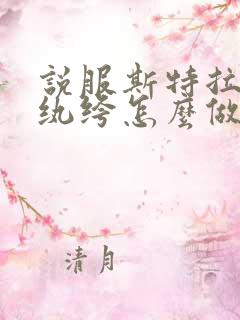 説服斯特拉
纨绔怎麼做
清月